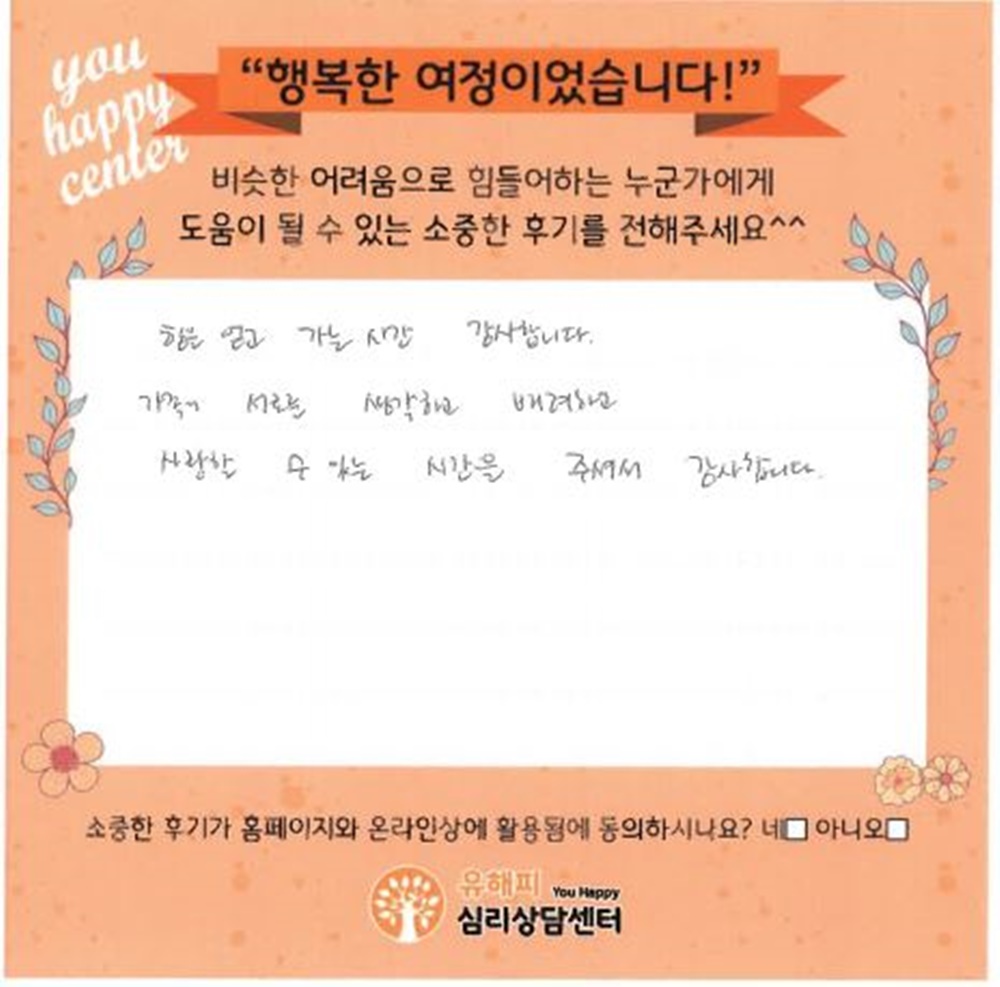 you
happy
center
“행복한 여정이었습니다!”
비슷한 어려움으로 힘들어하는 누군가에게
도움이 될 수 있는 소중한 후기를 전해주세요^^
힘을 얻고 가는 시간 감사합니다.
가족이 서로를 생각하고 배려하고
사랑할 수 있는 시간을 주셔서 감사합니다.
소중한 후기가 홈페이지와 온라인상에 활용됨에 동의하시나요? 네□ 아니오□
유해피 You Happy
심리상담센터